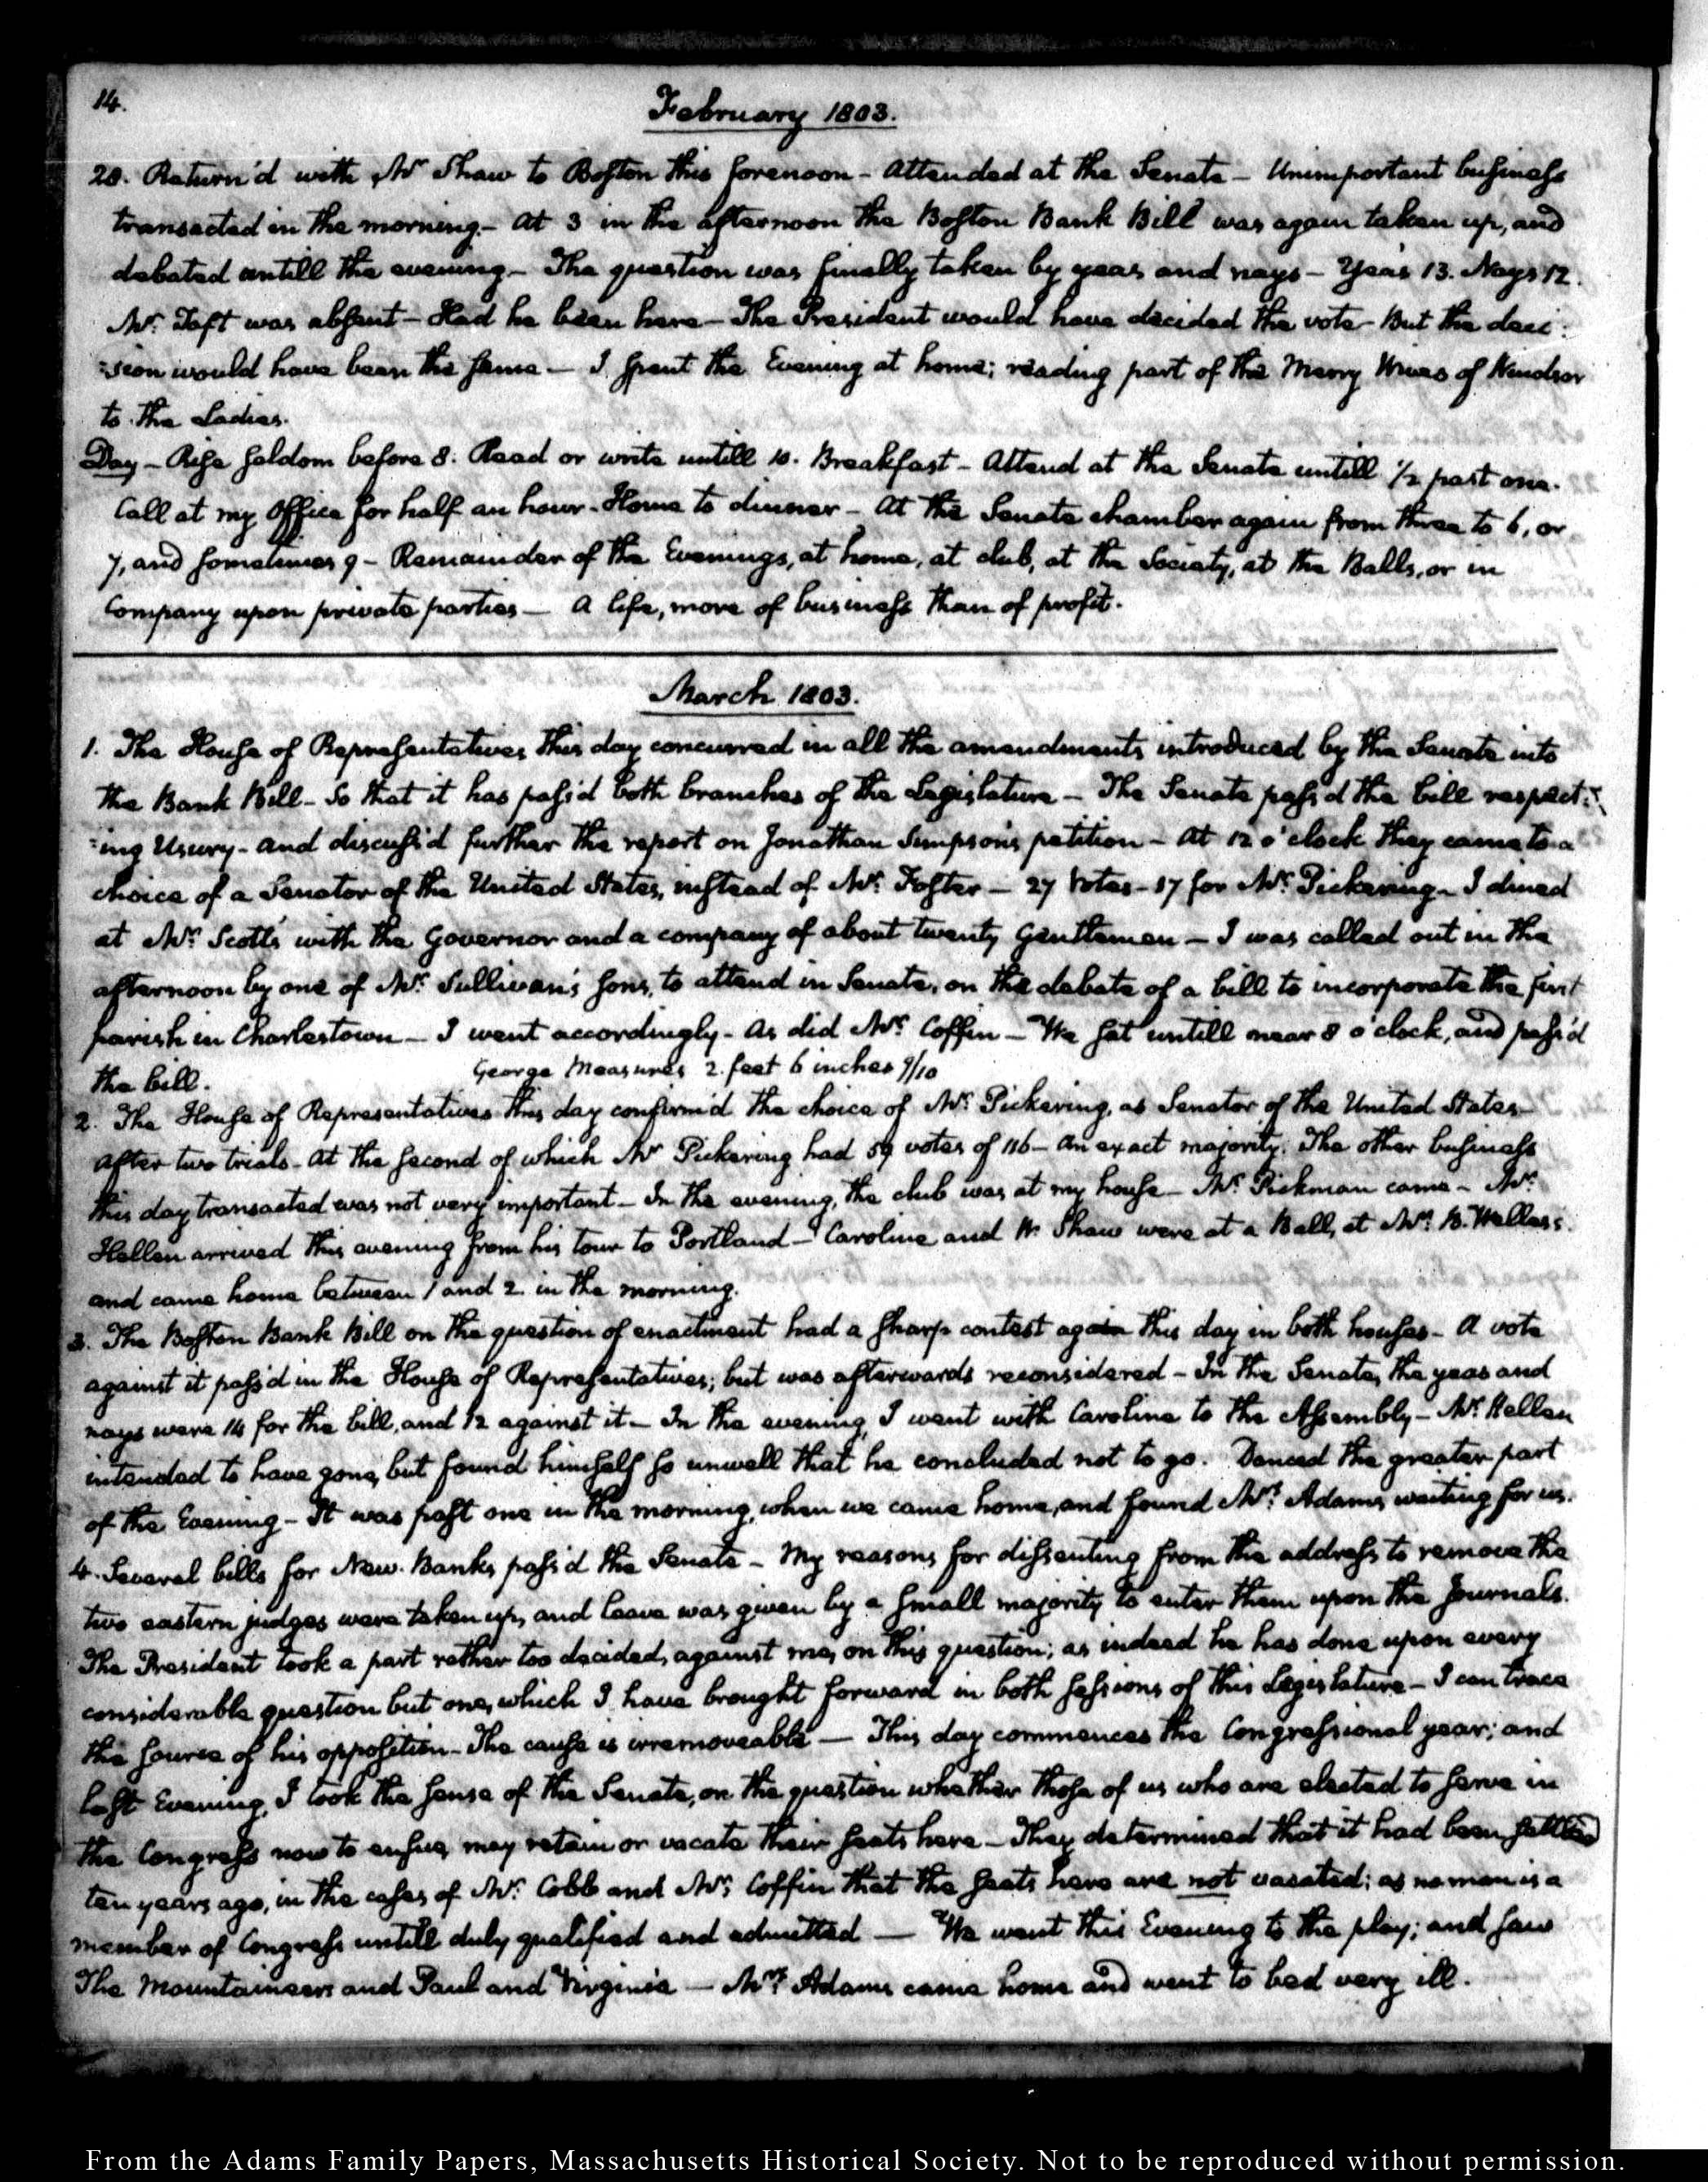 14.
February 1803.
28. Return'd with Mr. Shaw to Boston this forenoon - Attended at the Senate - Unimportant business
transacted in the morning - At 3 in the afternoon the Boston Bank Bill was again taken up, and
debated untill the evening - The question was finally taken by yeas and nays - Yeas 13. Nays 12.
Mr. Taft was absent - Had he been here - The President would have decided the vote - But the deci:
:sion would have been the same - I spent the Evening at home; reading part of the Merry Wives of Windsor
to the Ladies.
Day - Rise seldom before 8. Read or write untill 10. Breakfast - Attend at the Senate untill 1/2 past one.
Call at my Office for half an hour - Home to dinner - At the Senate chamber again from three to 6, or
7, and sometimes 9 - Remainder of the Evenings, at home, at club, at the Society, at the Balls, or in
Company upon private parties - A life, more of business than of profit.
March 1803.
1. The House of Representatives this day concurred in all the amendments introduced by the Senate into
the Bank Bill - So that it has pass'd both branches of the Legislature - The Senate pass'd the bill respect:
:ing Usury - and discuss'd further the report on Jonathan Simpson's petition - At 12 o'clock they came to a
choice of a Senator of the United States, instead of Mr. Foster - 27 Votes - 17 for Mr. Pickering - I dined
at Mr. Scott's with the Governor and a company of about twenty Gentlemen - I was called out in the
afternoon by one of Mr. Sullivan's sons, to attend in Senate, on the debate of a bill to incorporate the first
parish in Charlestown - I went accordingly - As did Mr. Coffin - We sat untill near 8 o'clock, and pass'd
the bill. George Measures 2 feet 6 inches 9/10
2. The House of Representatives this day confirm'd the choice of Mr. Pickering, as Senator of the United States -
After two trials - At the second of which Mr. Pickering had 59 votes of 116 - An exact majority. The other business
this day transacted was not very important - In the evening, the club was at my house - Mr. Pickman came - Mr.
Hellen arrived this evening from his tour to Portland - Caroline and W. Shaw were at a Ball, at Mr. B. Welles's.
and came home between 1 and 2 in the morning.
3. The Boston Bank Bill on the question of enactment had a sharp contest again this day in both houses - A vote
against it pass'd in the House of Representatives; but was afterwards reconsidered - In the Senate, the yeas and
nays were 14 for the bill, and 12 against it - In the evening, I went with Caroline to the Assembly - Mr. Hellen
intended to have gone, but found himself so unwell that he concluded not to go. Danced the greater part
of the Evening - It was past one in the morning, when we came home, and found Mrs. Adams waiting for us.
4. Several bills for New Banks pass'd the Senate - My reasons for dissenting from the address to remove the
two eastern judges were taken up, and leave was given by a small majority to enter them upon the Journals.
The President took a part rather too decided, against me, on this question; as indeed he has done upon every
considerable question but one, which I have brought forward in both sessions of this Legislature - I can trace
the source of his opposition - The cause is irremoveable - This day commences the Congressional year; and
last Evening, I took the sense of the Senate, on the question whether those of us who are elected to serve in
the Congress now to ensue, may retain or vacate their seats here - They determined that it had been settled
ten years ago, in the cases of Mr. Cobb and Mr. Coffin that the seats here are not vacated; as no man is a
member of Congress untill duly qualified and admitted - We went this Evening to the play; and saw
The Mountaineers and Paul and Virginia - Mrs. Adams came home and went to bed very ill.
From the Adams Family Papers, Massachusetts Historical Society. Not to be reproduced without permission.